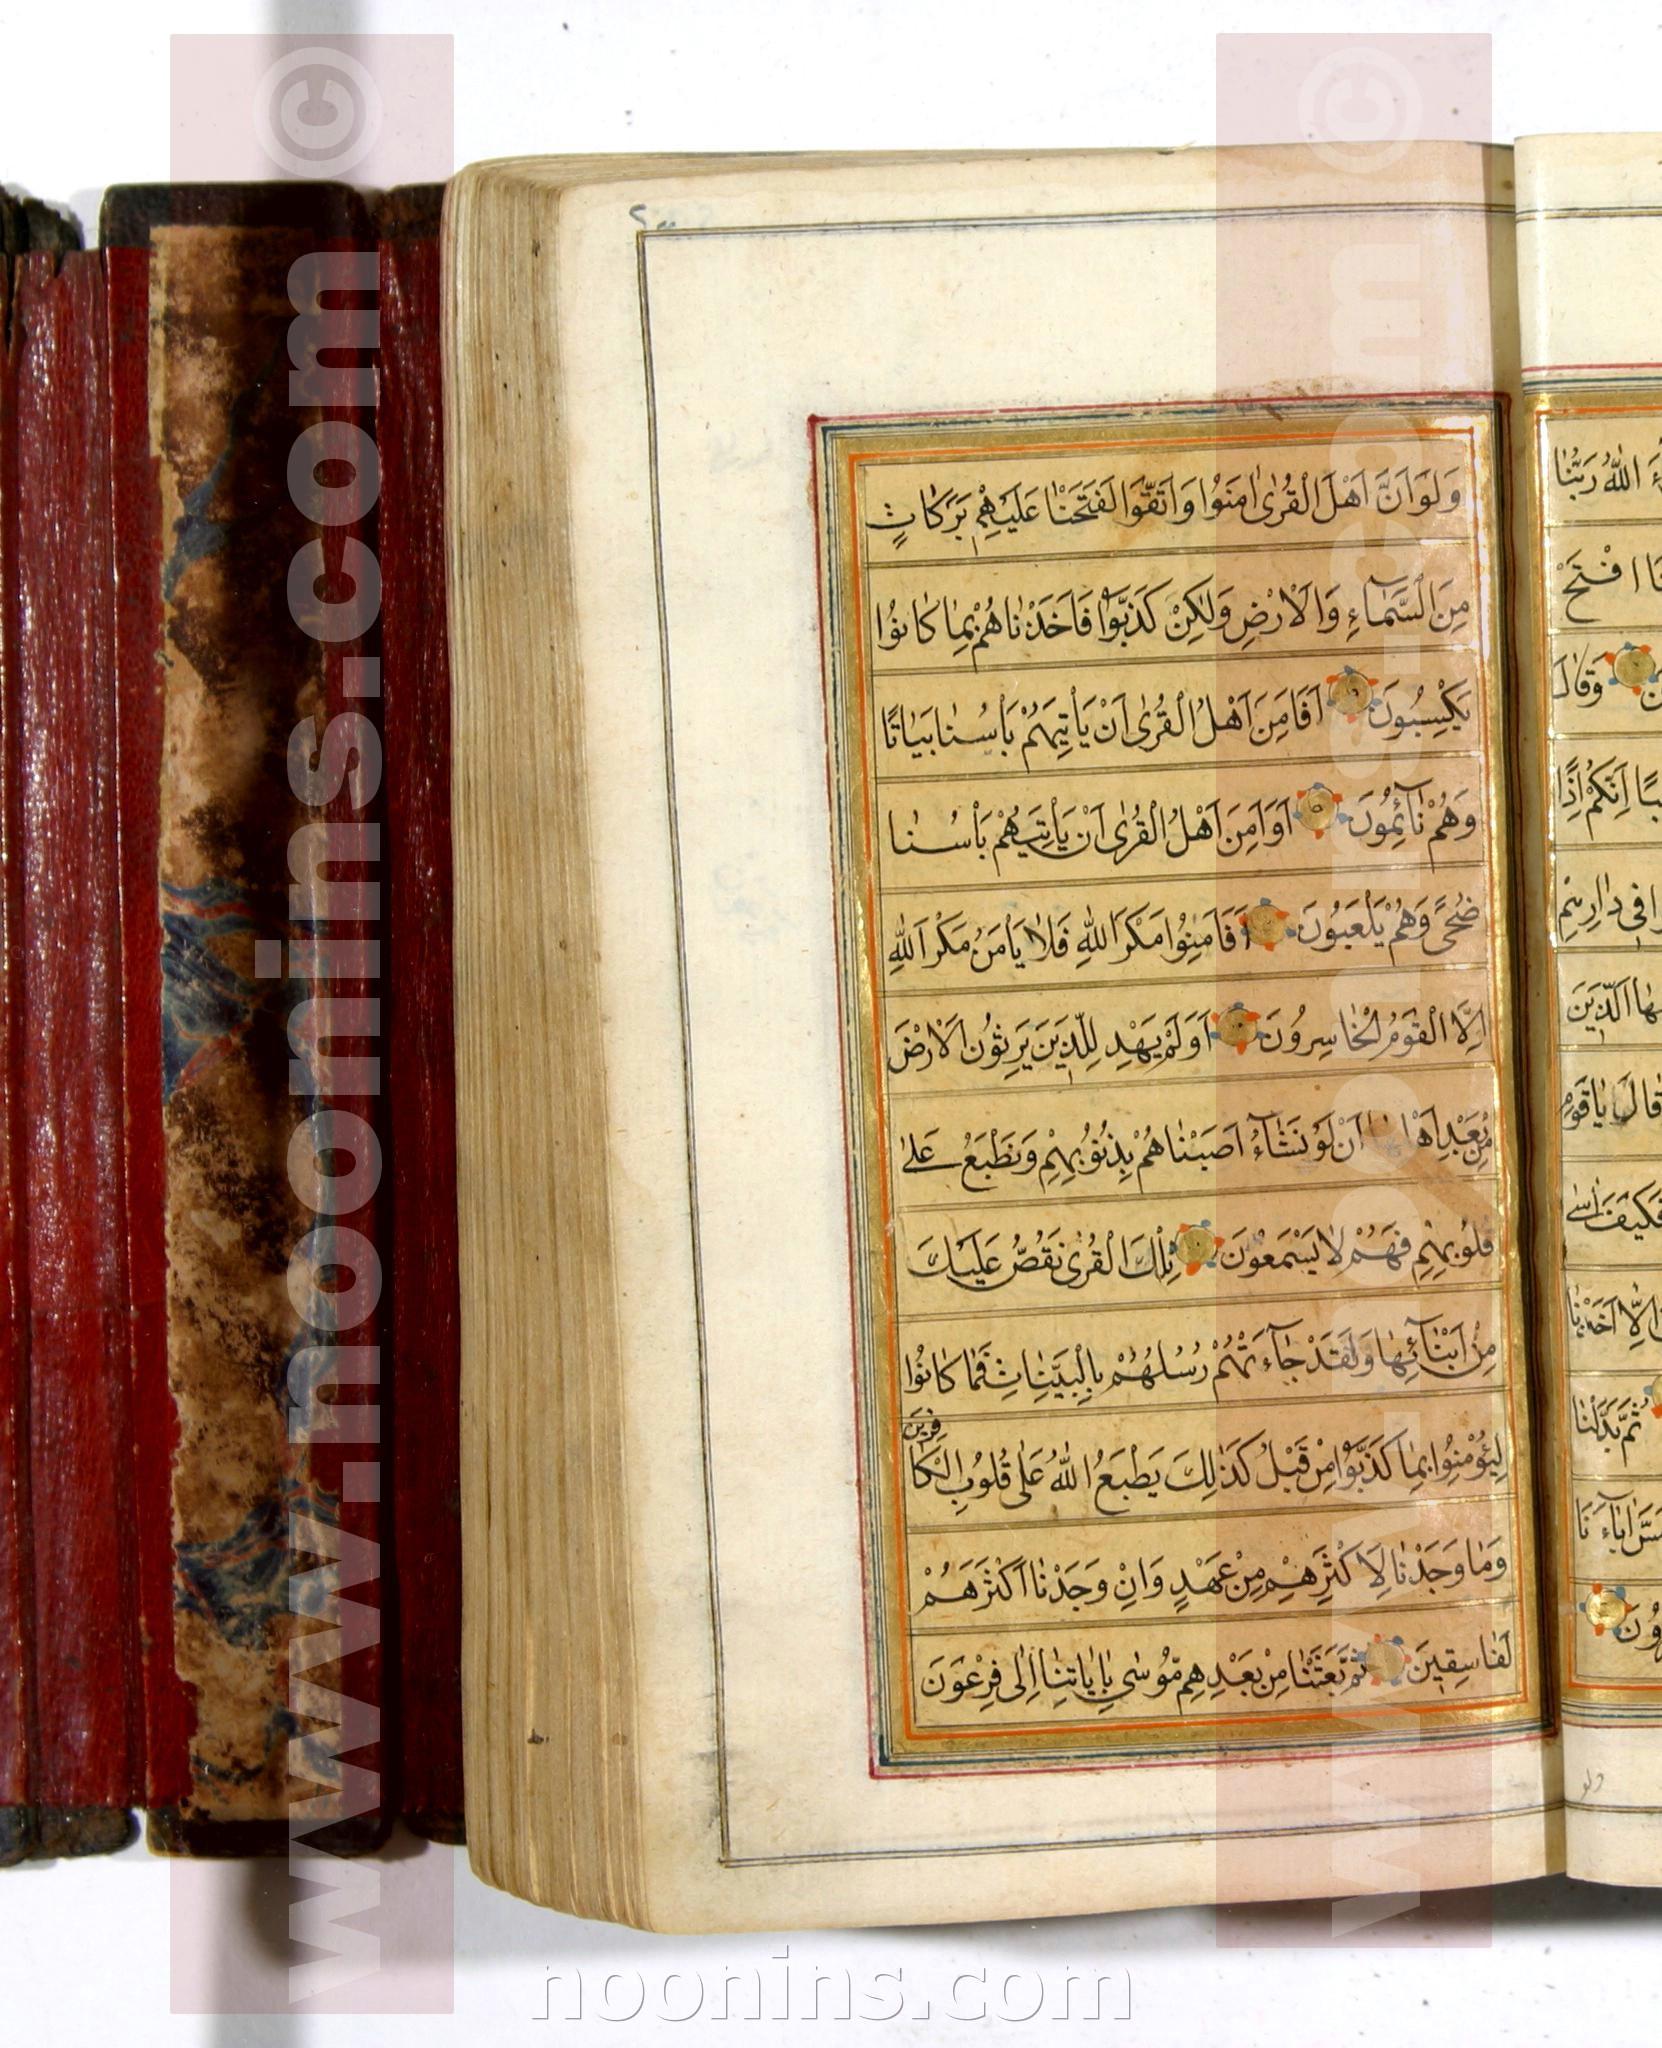 وَلَوْ اَنَّ اَهْلَ الْقُرٰى اٰمَنُوا وَاتَّقَوْا لَفَتَحْنٰا عَلَيْهِمْ بَرَكٰاتٍ
مِنَ السَّمٰآءِ وَالْاَرْضِ وَلٰكِنْ كَذَّبُوا فَاَخَذْنٰاهُمْ بِمٰا كٰانُوا
يَكْسِبُونَ اَفَاَمِنَ اَهْلُ الْقُرٰى اَنْ يَاْتِيَهُمْ بَاْسُنٰا بَيٰاتًا
وَهُمْ نٰآئِمُونَ اَوَاَمِنَ اَهْلُ الْقُرٰى اَنْ يَاْتِيَهُمْ بَاْسُنٰا
ضُحًى وَهُمْ يَلْعَبُونَ اَفَاَمِنُوا مَكْرَ اللّٰهِ فَلٰا يَاْمَنُ مَكْرَ اللّٰهِ
اِلَّا الْقَوْمُ الْخٰاسِرُونَ اَوَلَمْ يَهْدِ لِلَّذِينَ يَرِثُونَ الْاَرْضَ
مِنْ بَعْدِ اَنْ لَوْ نَشٰآءُ اَصَبْنٰاهُمْ بِذُنُوبِهِمْ وَنَطْبَعُ عَلٰى
قُلُوبِهِمْ فَهُمْ لٰا يَسْمَعُونَ تِلْكَ الْقُرٰى نَقُصُّ عَلَيْكَ
مِنْ اَنْبٰآئِهٰا وَلَقَدْ جٰآءَتْهُمْ رُسُلُهُمْ بِالْبَيِّنٰاتِ فَمٰا كٰانُوا
لِيُؤْمِنُوا بِمٰا كَذَّبُوا مِنْ قَبْلُ كَذٰلِكَ يَطْبَعُ اللّٰهُ عَلٰى قُلُوبِ الْكٰافِرِينَ
وَمٰا وَجَدْنٰا لِاَكْثَرِهِمْ مِنْ عَهْدٍ وَاِنْ وَجَدْنٰا اَكْثَرَهُمْ
لَفٰاسِقِينَ ثُمَّ بَعَثْنٰا مِنْ بَعْدِهِمْ مُوسٰى بِاٰيٰاتِنٰا اِلٰى فِرْعَوْنَ
اللّٰهُ رَبُّنٰا
افْتَحْ
وَقٰالَ
اِنَّكُمْ اِذًا
فِى دٰارِهِمْ
الَّذِينَ
قٰالَ يٰا قَوْمِ
فَكَيْفَ اٰسٰى
اِلّٰا اَخَذْنٰا
ثُمَّ بَدَّلْنٰا
مَسَّ اٰبٰآءَنَا
ولو
© www.noonins.com
© www.noonins.com
noonins.com